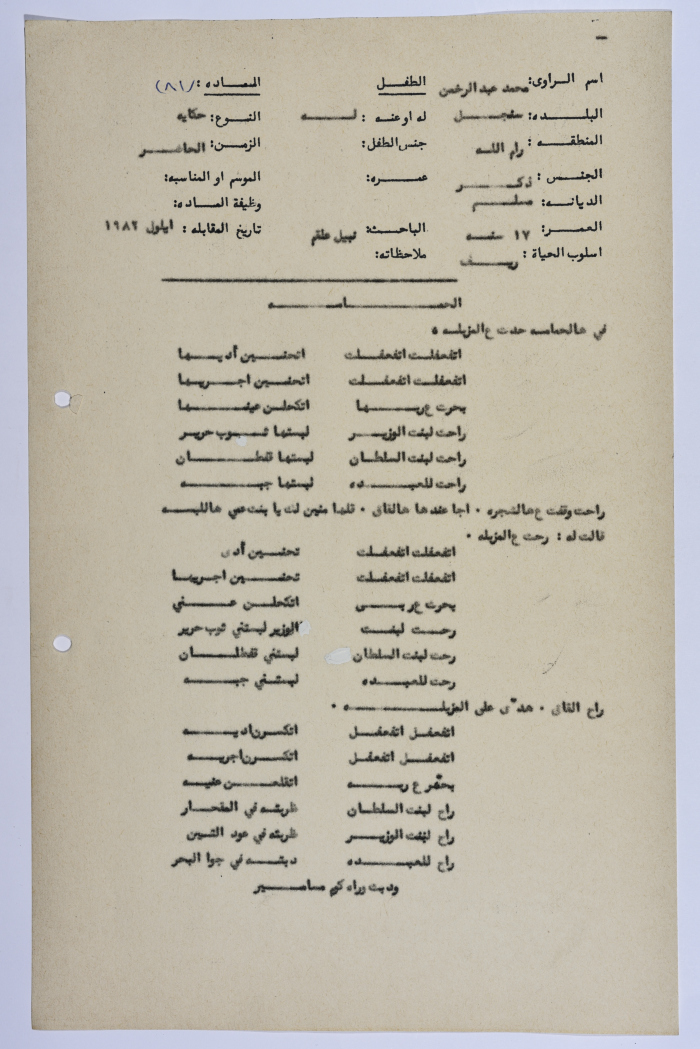 اسم الراوى: محمد عبد الرحمن الطفل المادة: (٨١)
البلده: سنجل له او عنه: له النوع: حكايه
المنطقه: رام الله جنس الطفل: الزمن: الحاضر
الجنس: ذكر عمره: الموسم او المناسبه:
الديانه: مسلم وظيفة الماده:
العمر: ١٧ سنه الباحث: نبيل علقم تاريخ المقابله: ايلول ١٩٨٢
اسلوب الحياة: ريف ملاحظاته:
الحمامه
في هالحمامه حدت ع المزبله ٠
اتفعفلت اتفعفلت اتحنين أديها
اتفعفلت اتفعفلت اتحنين اجريها
بحرت ع ربها اتكحلن عينيها
راحت لبنت الوزير لبستها ثوب حرير
راحت لبنت السلطان لبستها قفطان
راحت للعبده لبستها جبه
راحت وقفت ع هالشجره ٠ اجا عندها هالقاق ٠ قلها منين لك يا بنت عمي هاللبسه
قالت له : رحت ع المزبله ٠
اتفعفلت اتفعفلت تحنين أدي
اتفعفلت اتفعفلت تحنين اجريها
بحرت ع ربي اتكحلن عني
رحت لبنت الوزير لبستني ثوب حرير
رحت لبنت السلطان لبستني قفطان
رحت للعبده لبستني جبه
راح القاق ٠ هدّى على المزبله ٠
اتفعفل اتفعفل اتكسرن اديه
اتفعفل اتفعفل اتكسرن اجريه
بحّر ع ربه اتقلعن عنيه
راح لبنت السلطان ظربته في المقحار
راح لبنت الوزير ظربته في عود التين
راح للعبده دبته في جوا البحر
ودبت وراه كم مسامير